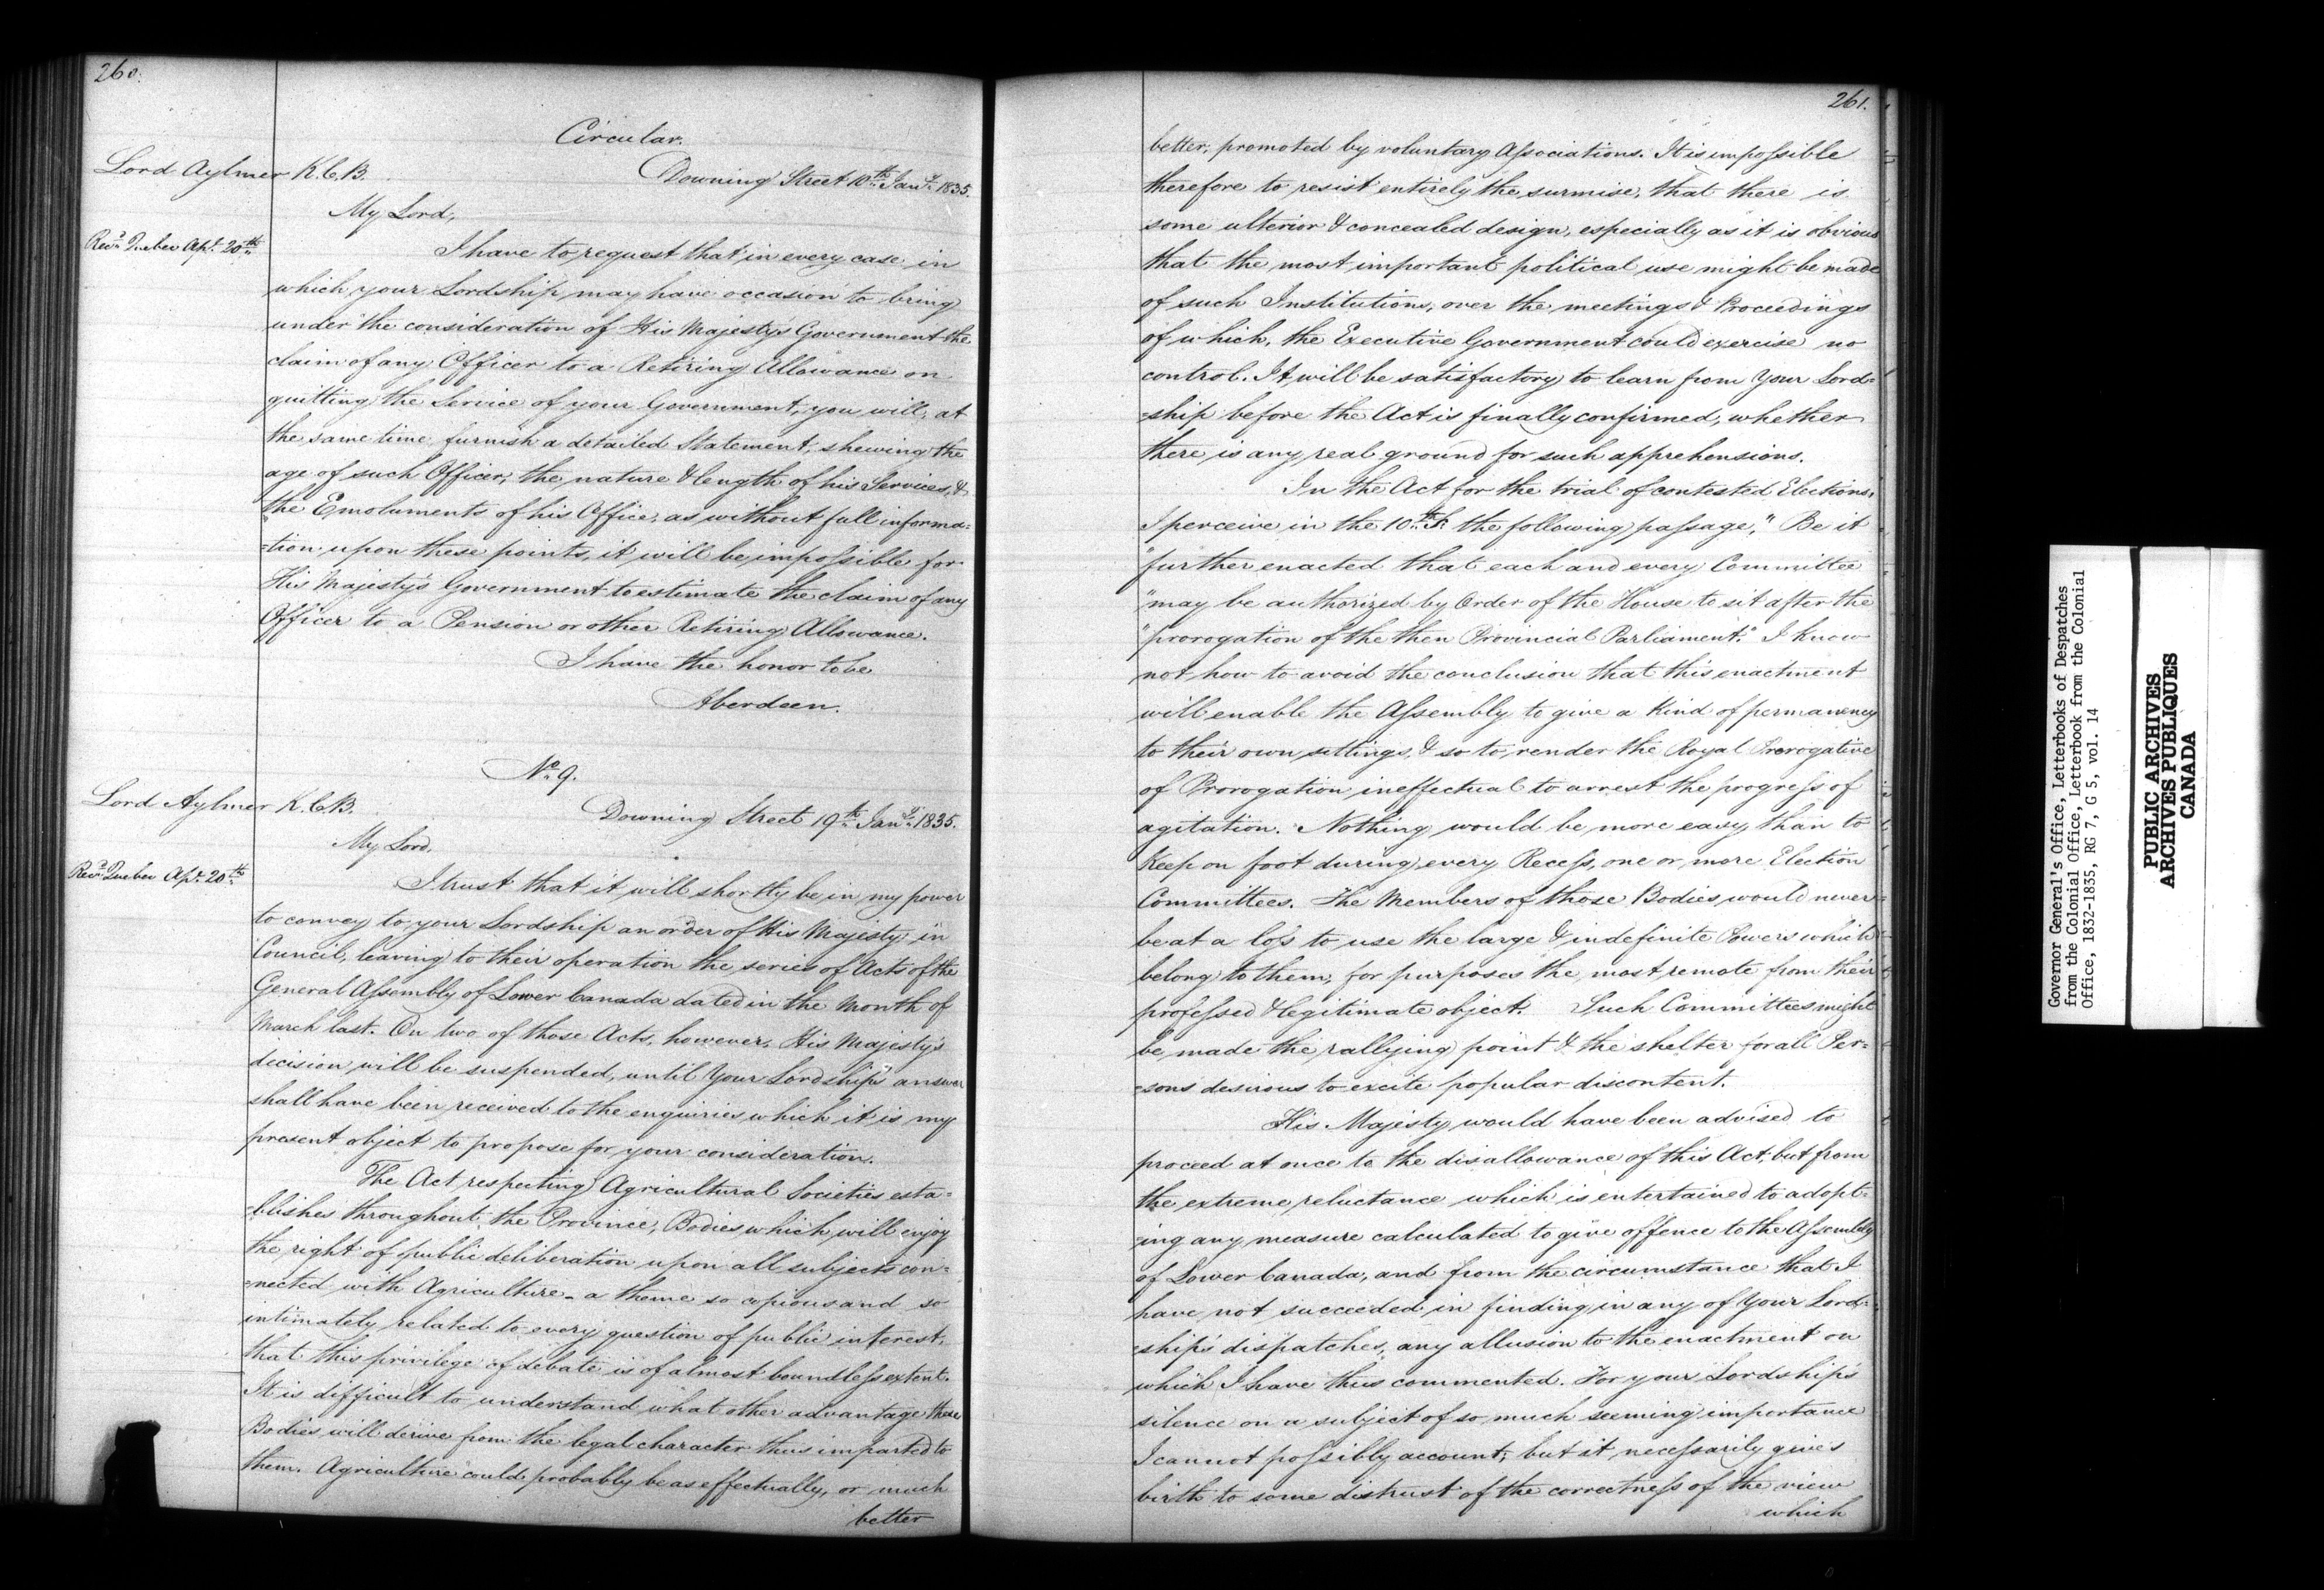 260.
Circular.
Lord Aylmer K.C.B.
Downing Street 10th Jany 1835.
My Lord,
Recd Quebec Apl 20th
I have to request that in every case in
which your Lordship may have occasion to bring
under the consideration of His Majesty's Government the
claim of any Officer to a Retiring Allowance on
quitting the Service of your Government, you will, at
the same time furnish a detailed Statement, shewing the
age of such Officer, the nature & length of his Services, &
the Emoluments of his Office, as without full informa=
=tion upon these points, it will be impossible for
His Majesty's Government to estimate the claim of any
Officer to a Pension or other Retiring Allowance.
I have the honor to be
Aberdeen.
No 9.
Lord Aylmer K.C.B.
Downing Street 19th Jany 1835.
My Lord,
Recd Quebec Apl 20th
I trust that it will shortly be in my power
to convey to your Lordship an order of His Majesty in
Council, leaving to their operation the series of Acts of the
General Assembly of Lower Canada dated in the Month of
March last. On two of those Acts, however, His Majesty's
decision will be suspended, until Your Lordship's answer
shall have been received to the enquiries which it is my
present object to propose for your consideration.
The Act respecting Agricultural Societies esta=
=blishes throughout the Province, Bodies which will enjoy
the right of public deliberation upon all subjects con=
=nected with Agriculture - a theme so copious and so
intimately related to every question of public interest,
that this privilege of debate is of almost boundless extent.
It is difficult to understand what other advantage these
Bodies will derive from the legal character thus imparted to
them. Agriculture could probably be as effectually, or much
better
261.
better, promoted by voluntary Associations. It is impossible
therefore to resist entirely the surmise, that there is
some ulterior & concealed design, especially as it is obvious
that the most important political use might be made
of such Institutions, over the meetings & Proceedings
of which, the Executive Government could exercise no
control. It will be satisfactory to learn from Your Lord=
=ship before the Act is finally confirmed, whether
there is any real ground for such apprehensions.
In the Act for the trial of contested Elections,
I perceive in the 10th S. the following passage, "Be it
"further enacted that each and every Committee
"may be authorized by Order of the House to sit after the
"prorogation of the then Provincial Parliament." I know
not how to avoid the conclusion that this enactment
will enable the Assembly to give a kind of permanency
to their own sittings, & so to render the Royal Prerogative
of Prorogation ineffectual to arrest the progress of
agitation. Nothing would be more easy than to
keep on foot during every Recess, one or more Election
Committees. The Members of those Bodies would never
be at a loss to use the large & indefinite Powers which
belong to them, for purposes the most remote from their
professed & legitimate object. Such Committees might
be made the rallying point & the shelter for all Per=
=sons desirous to excite popular discontent.
His Majesty would have been advised to
proceed at once to the disallowance of this Act, but from
the extreme reluctance which is entertained to adopt=
=ing any measure calculated to give offence to the Assembly
of Lower Canada, and from the circumstance that I
have not succeeded in finding in any of Your Lord=
=ship's dispatches, any allusion to the enactment on
which I have thus commented. For your Lordship's
silence on a subject of so much seeming importance
I cannot possibly account; but it necessarily gives
birth to some distrust of the correctness of the view
which
Governor General's Office, Letterbooks of Despatches
from the Colonial Office, Letterbook from the Colonial
Office, 1832-1835, RG 7, G 5, vol. 14
PUBLIC ARCHIVES
ARCHIVES PUBLIQUES
CANADA